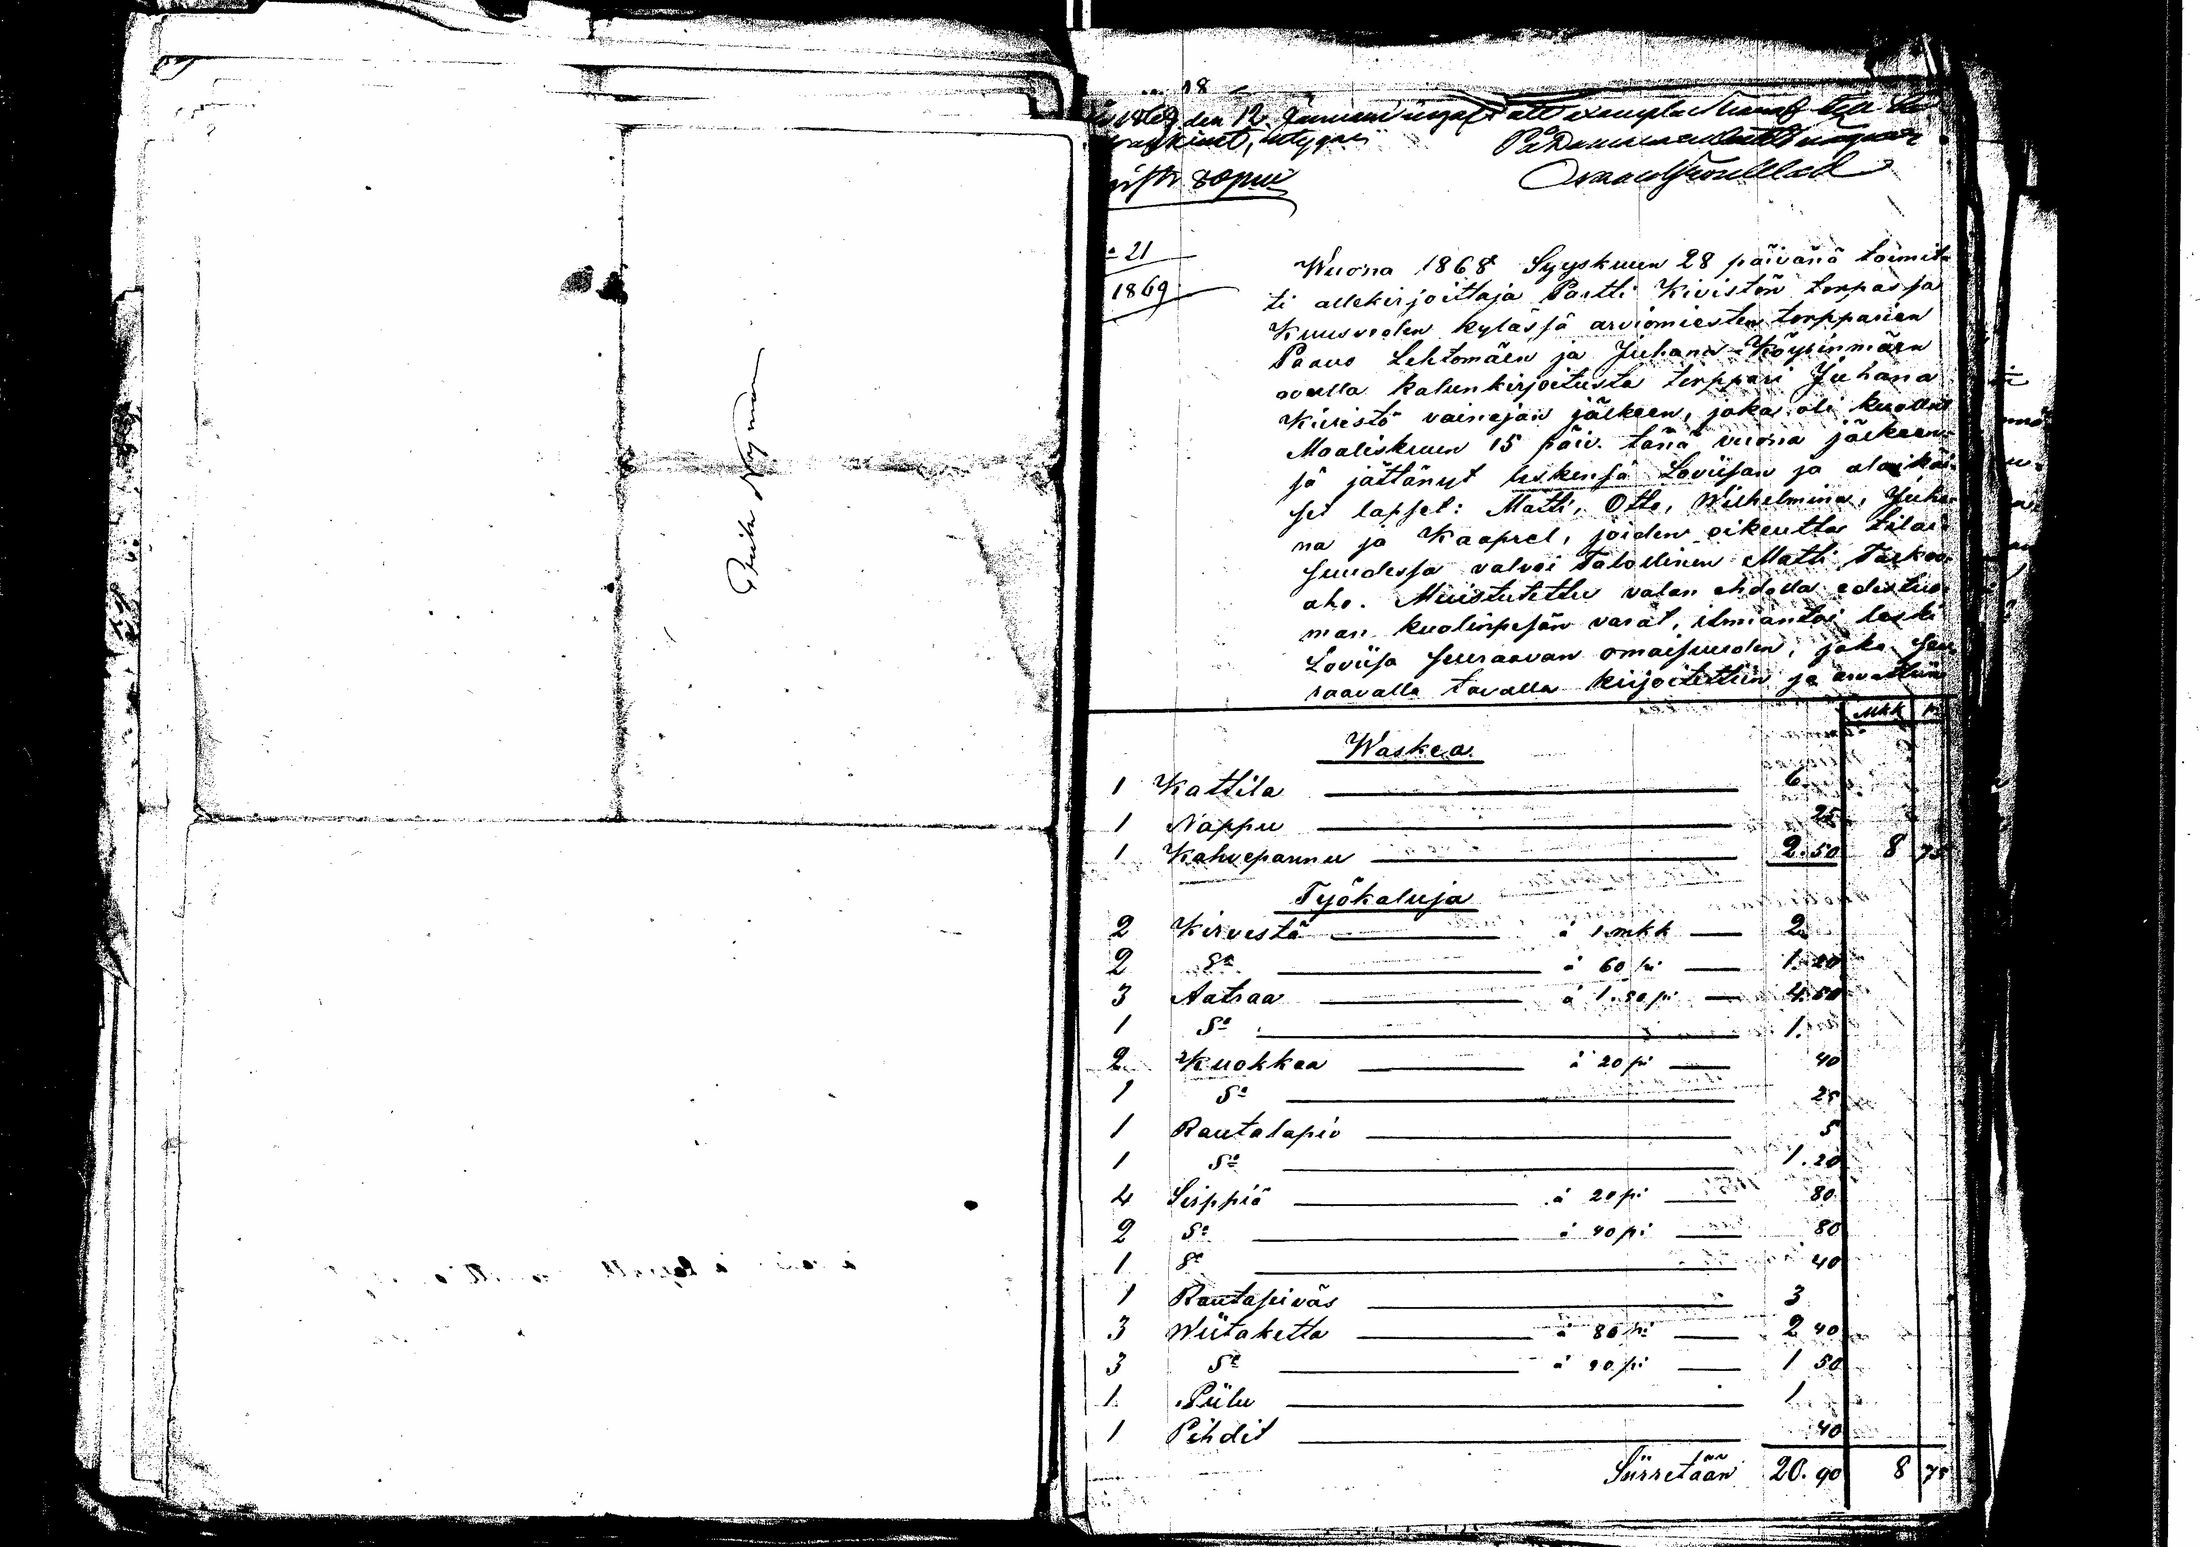 Nyman
18
den 12 Januari
21
1869
Wuona 1868 Syyskuun 28 päivänä toimit
ti allekirjoittaja Partti Kivistön torpassa
Kuusveden kylässä arviomiesten torpparien
Paavo Lehtomäen ja Juhana Köyrinmäen
avulla kalunkirjoitusta torppari Juhana
Kivistö vainajan jälkeen, joka oli kuollut
Maaliskuun 15 päiv. tänä vuonna jälkeen-
sä jättänyt leskensä Loviisan ja alaikäi-
set lapset: Matti, Otto, Wilhelmina, Juha-
na ja Kaaprel, joiden oikeutta tilai-
suudessa valvoi Talollinen Matti
aho. Muistutettu valan ehdolla edestuo-
man kuolinpesän varat, ilmiantoi leski
Loviisa seuraavan omaisuuden, joka seu
raavalla tavalla kirjoitettiin ja arvattiin
Mkk pi
Waskea
1 Kattila 6.
1 Nappu 25
1 Kahvepannu 2.50 8 75
Työkaluja
2 Kirvestä á 1 mkk 2
2 Sa á 60 pi 1.20
3 Aatraa á 1.50 pi 4.50
1 Sa 1.
2 Kuokkaa á 20 pi 40
1 Sa 25
1 Rautalapio 5
1 Sa 1.20
4 Sirppiä á 20 pi 80
2 Sa á 40 pi 80
1 Sa 40
1 Rautaseiväs 3
3 Wiitaketta á 80 pi 2 40
3 Sa pi 1 50
1 Piilu 1
1 Pihdit 40
Siirretään 20.90 8 75